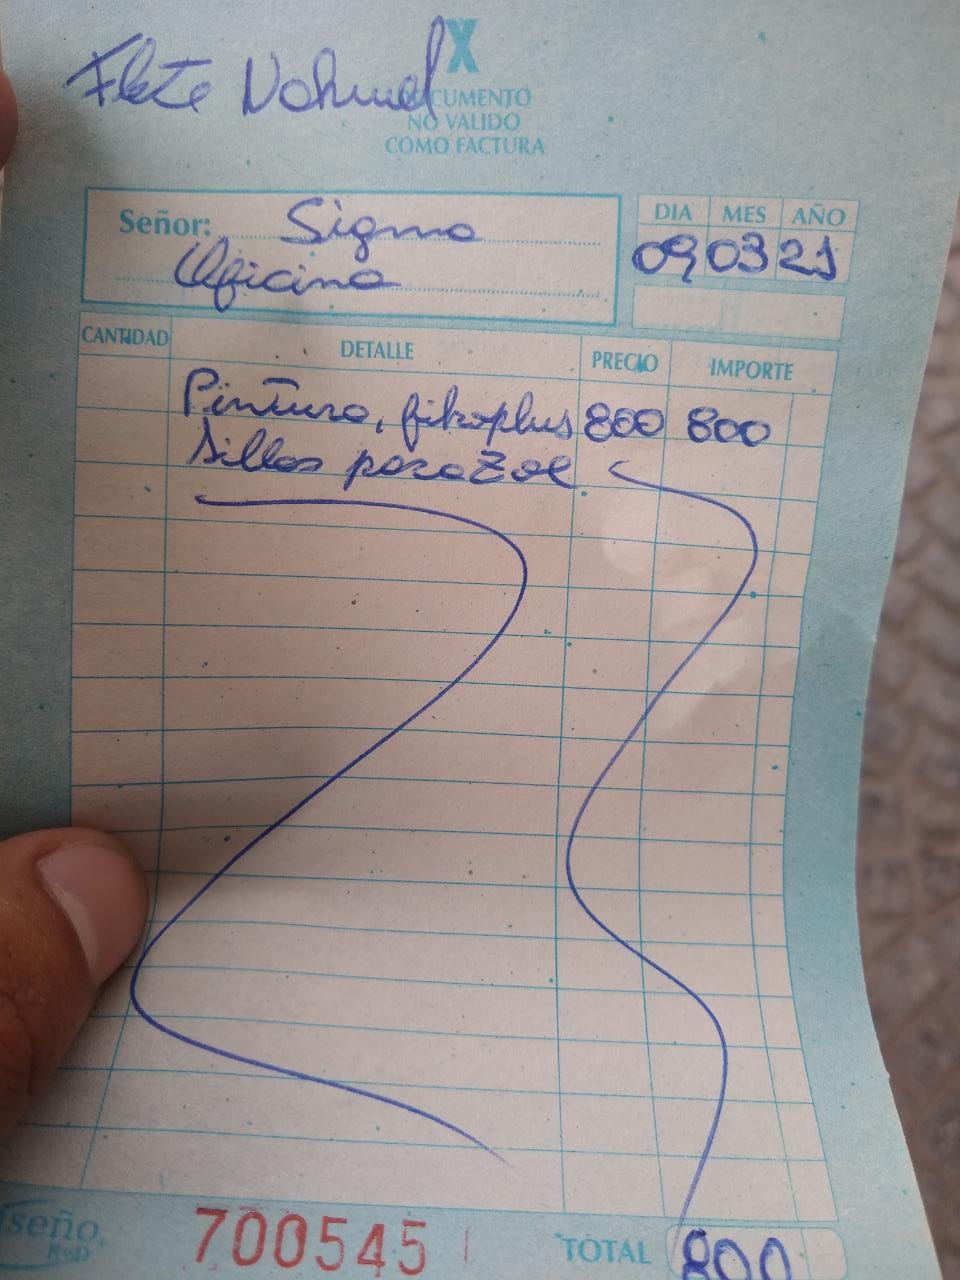 X
Flete Nahuel
DOCUMENTO
NO VALIDO
COMO FACTURA
Señor: Sigma
Oficina
DIA MES AÑO
09 03 21
CANTIDAD DETALLE PRECIO IMPORTE
Pintura, fibroplus 800 800
Sillas para Zoe
iseño
R&D
700545
TOTAL 800